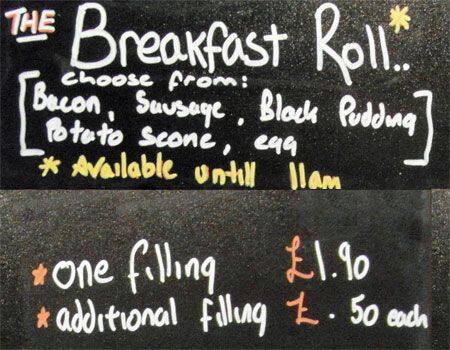 THE Breakfast Roll..*
choose from:
[Bacon, Sausage, Black Pudding
Potato Scone, egg]
* Available untill 11am
* one filling £1.90
* additional filling £.50 each